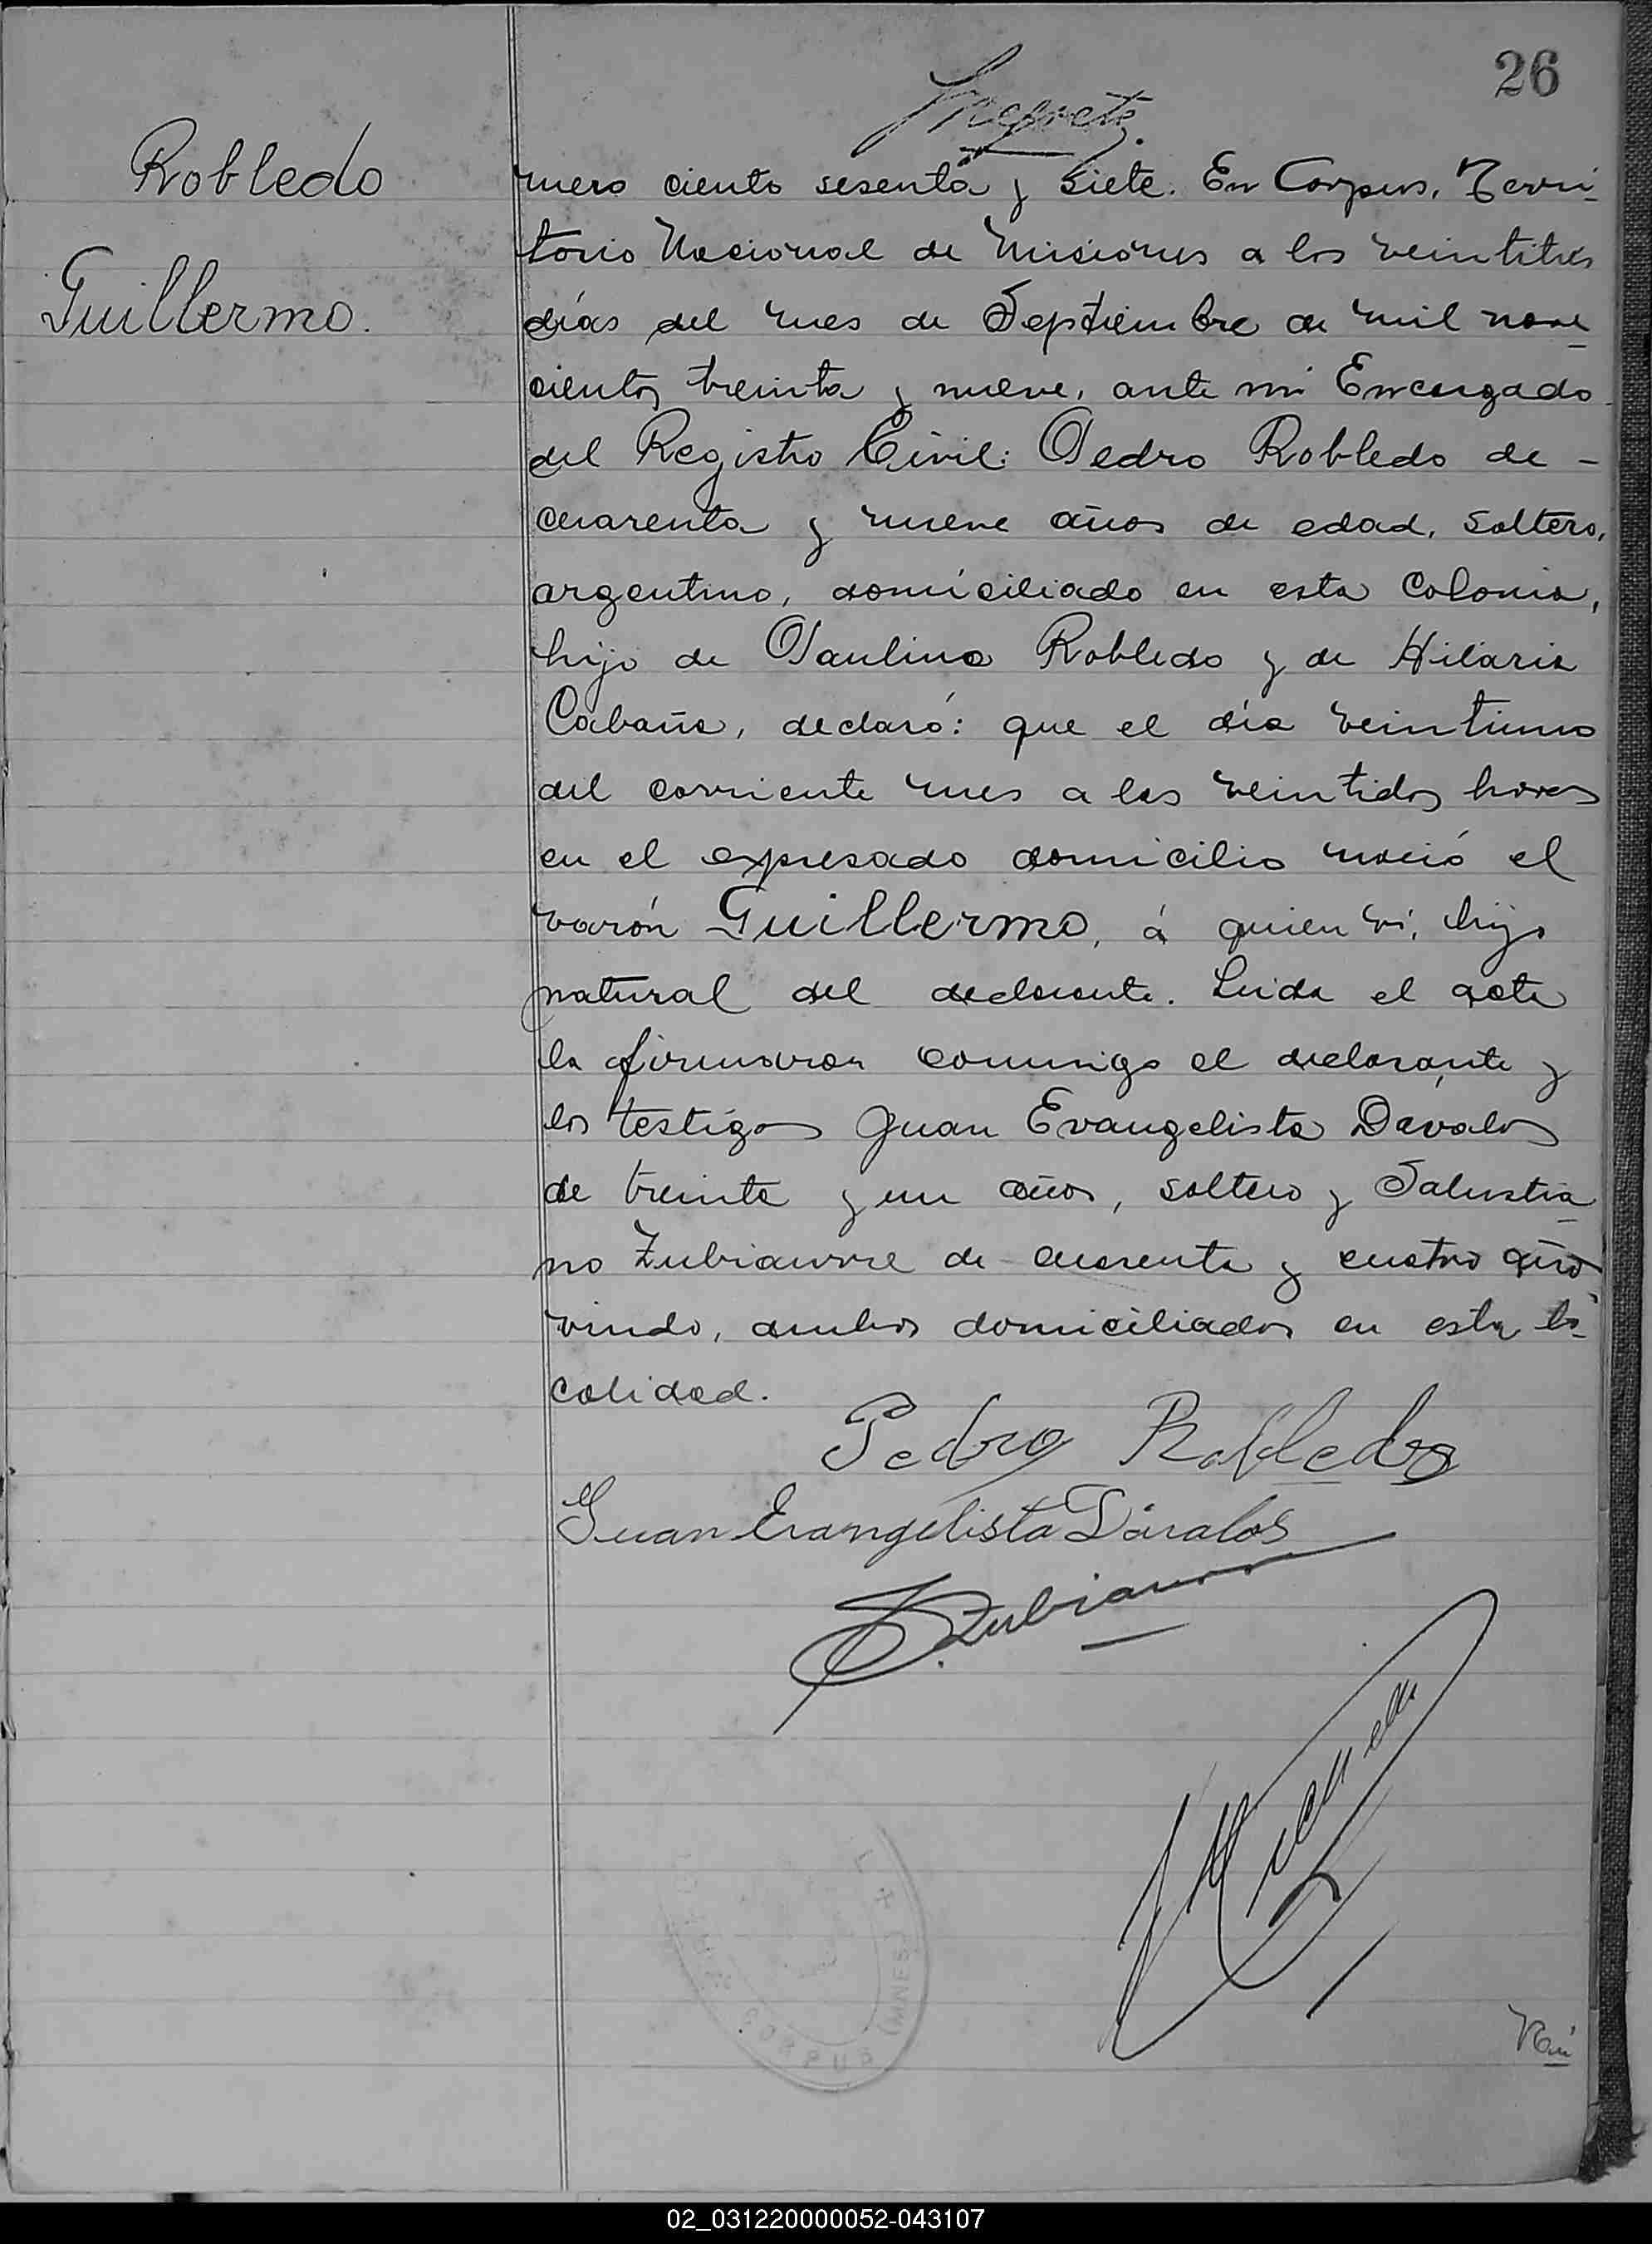 26
Robledo
Guillermo.
mero ciento sesenta y siete. En Corpus, Terri-
torio Nacional de Misiones a los veintitres
días del mes de Septiembre de mil nove-
cientos treinta y nueve, ante mi Encargado
del Registro Civil: Pedro Robledo de -
cuarenta y nueve años de edad, soltero,
argentino, domiciliado en esta Colonia,
hijo de Paulino Robledo y de Hilaria
Cabaña, declaró: que el día veintiuno
del corriente mes a las veintidos horas
en el expresado domicilio nació el
varón Guillermo, á quien ví, hijo
natural del declarante. Leida el acta
la firmaron conmigo el declarante y
los testigos Juan Evangelista Dávalos
de treinta y un años, soltero y Salustia-
no Zubiaurre de cuarenta y cuatro años
viudo, ambos domiciliados en esta lo-
calidad.
Pedro Robledo
Juan Evangelista Dávalos
S. Zubiaurre
CORPUS (MNES)
02_031220000052-043107